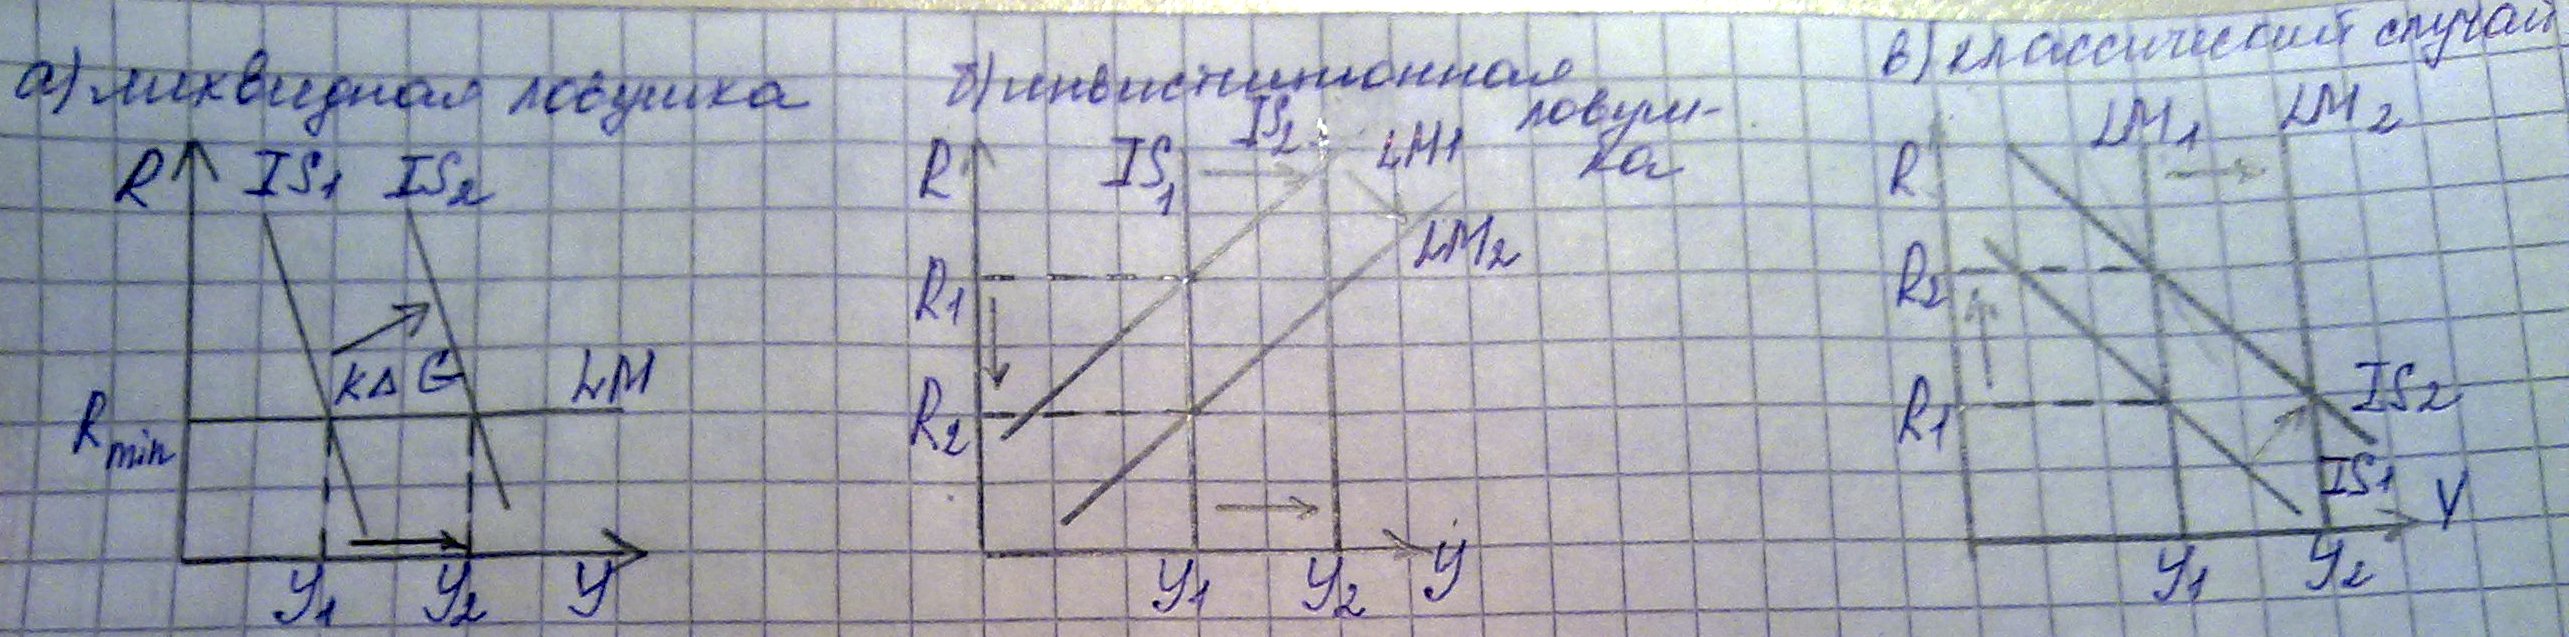 а) ликвидная ловушка
R IS1 IS2
KΔG LM
Rmin
y1 y2 y
б) инвистиционная ловуш-
ка
IS1 IS2 LM1
R
LM2
R1
R2
y1 y2 y
в) классический случай
LM1 LM2
R
R2
R1
IS2
IS1
y1 y2 Y